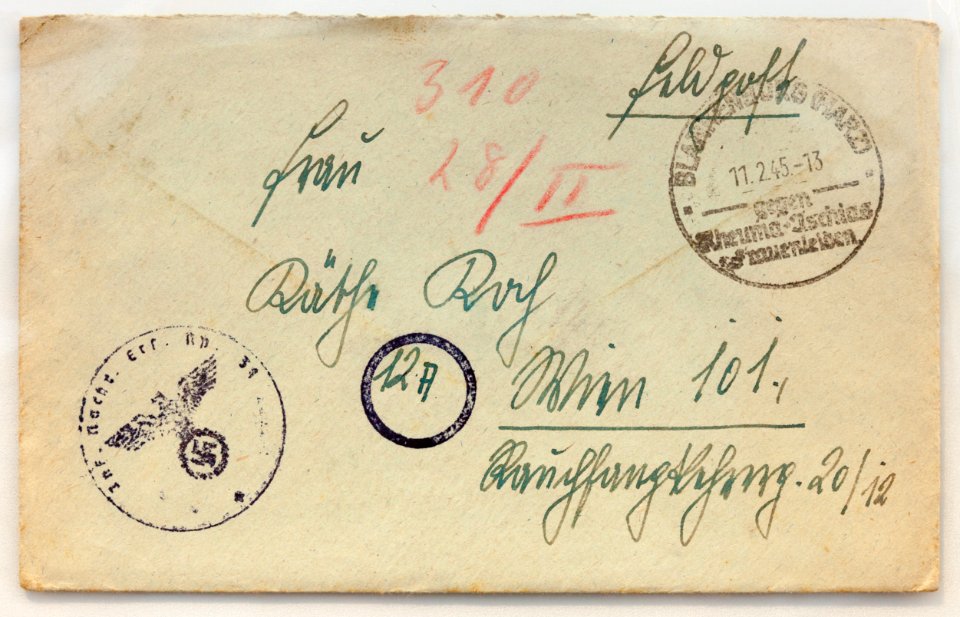 Feldpost
310
28/II
Frau
Käthe Koch
12A
Wien 101.
Rauchfangkehrerg. 20/12
BLANKENBURG (HARZ)
11.2.45.-13
gegen
Rheuma-Ischias
Frauenleiden
Inf.-Nachr.-Ers.-Kp.